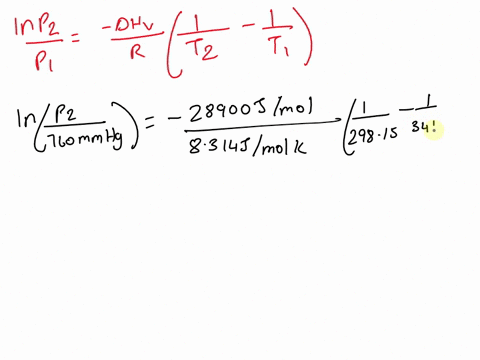 ln P2/P1 = -DHv/R (1/T2 - 1/T1)
ln (P2/760mmHg) = - 28900J/mol / 8.314J/molK (1/298.15 - 1/34